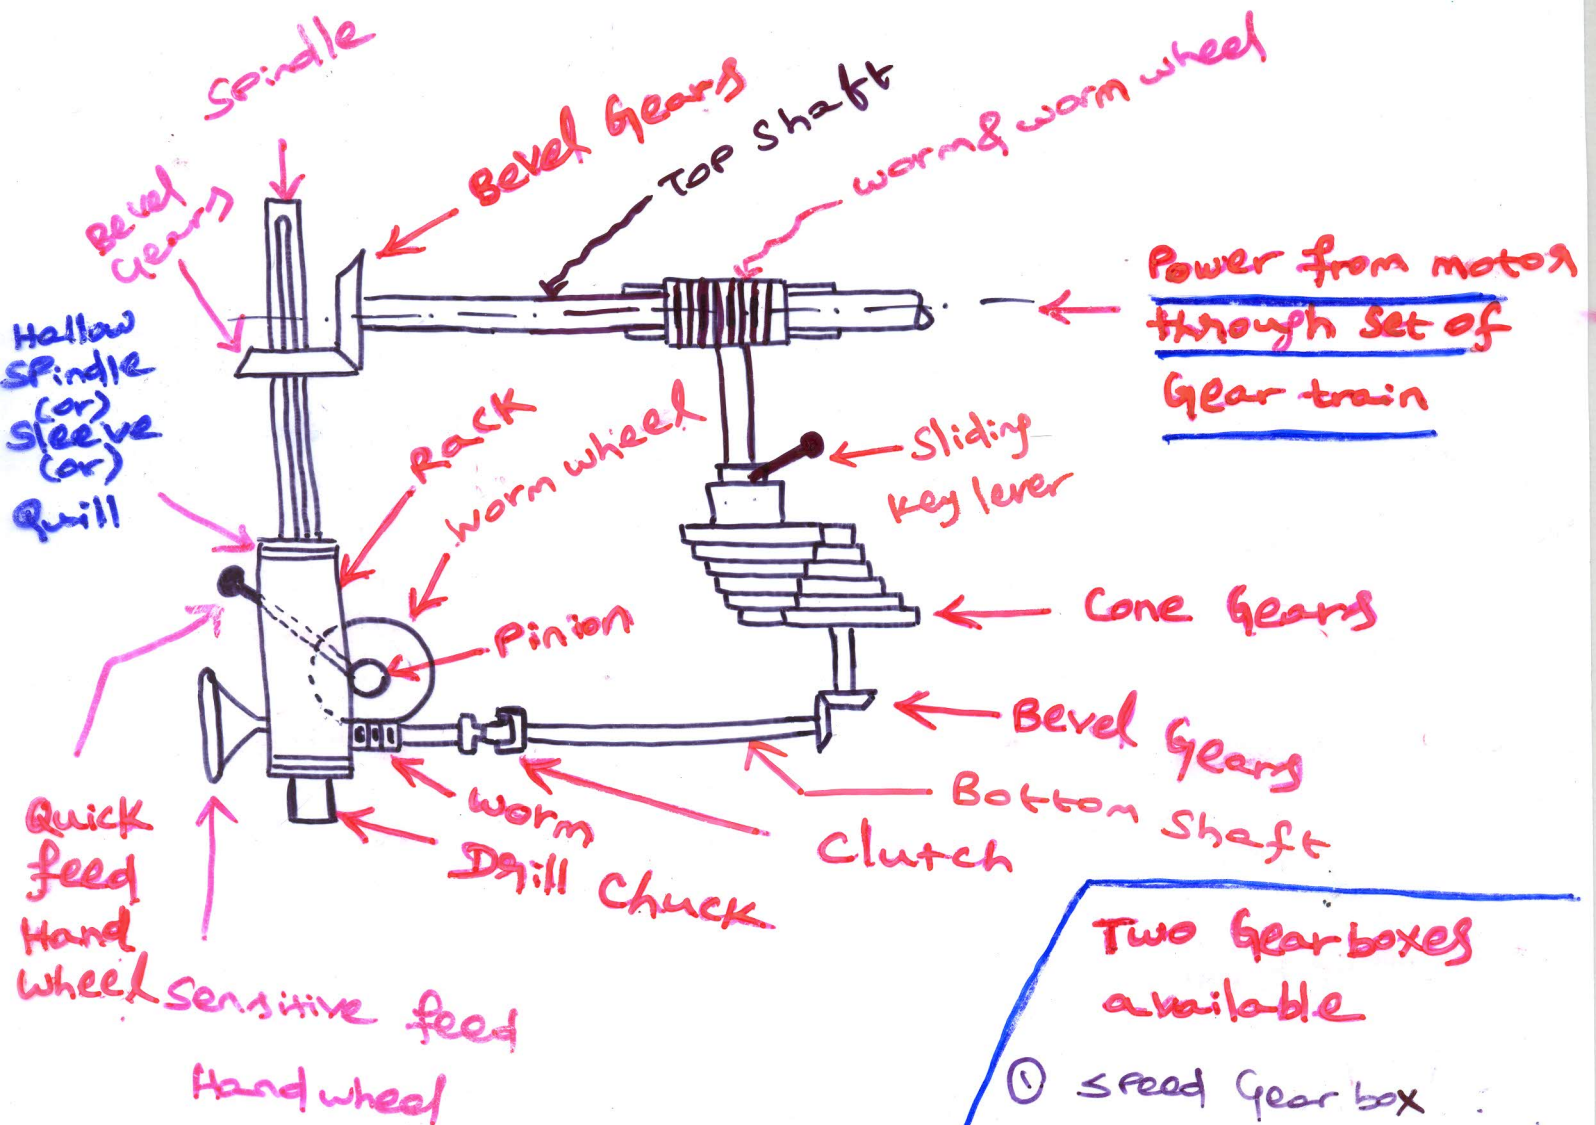 Spindle
Bevel
Gears
Bevel Gears
Top Shaft
worm & worm wheel
Power from motor
through set of
Gear train
Hollow
Spindle
(or)
Sleeve
(or)
Quill
Rack
worm wheel
Sliding
Key lever
Pinion
Cone Gears
Bevel
Gears
Bottom
Shaft
Clutch
worm
Drill Chuck
Quick
feed
Hand
wheel
Sensitive feed
Hand wheel
Two Gear boxes
available
① Speed Gear box